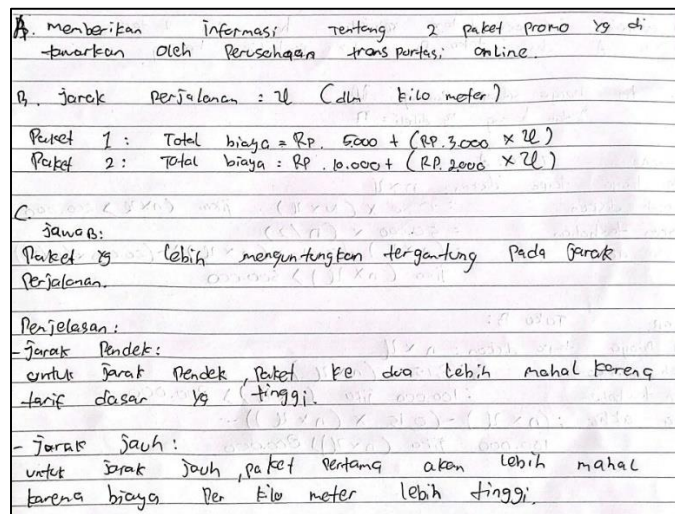 A. memberikan informasi tentang 2 paket promo yg di
tawarkan oleh Perusahaan transportasi online.
B. jarak perjalanan : x (dlm kilo meter)
Paket 1 : Total biaya = RP. 5.000 + (RP. 3.000 × x)
Paket 2 : Total biaya : RP. 10.000 + (RP. 2000 × x)
C.
jawaB:
Paket yg lebih menguntungkan tergantung pada jarak
Perjalanan.
Penjelasan :
- jarak Pendek :
untuk jarak Pendek, Paket ke dua lebih mahal karena
tarif dasar yg tinggi.
- jarak jauh :
untuk jarak jauh, paket Pertama akan lebih mahal
karena biaya Per kilo meter lebih tinggi.